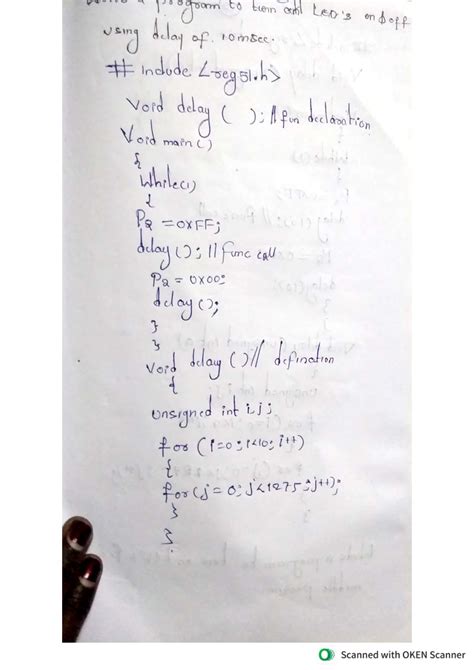 a program to turn all LED's on & off
using delay of 10msec.
# include <reg51.h>
Void delay ( ); // fun declaration
Void main()
{
While(1)
{
P2 = 0xFF;
delay(); // func call
P2 = 0x00;
delay();
}
}
void delay () // defination
{
unsigned int i,j;
for (i=0; i<10; i++)
{
for (j=0; j<1275; j++);
}
}
Scanned with OKEN Scanner